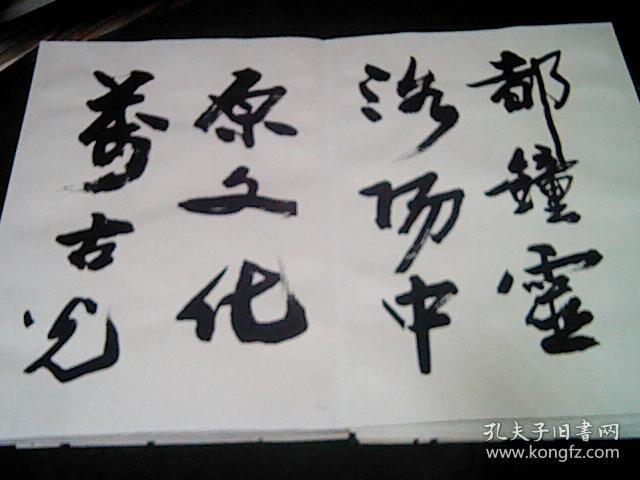 都鐘靈
洛陽中
原文化
萬古光
孔夫子旧书网
www.kongfz.com